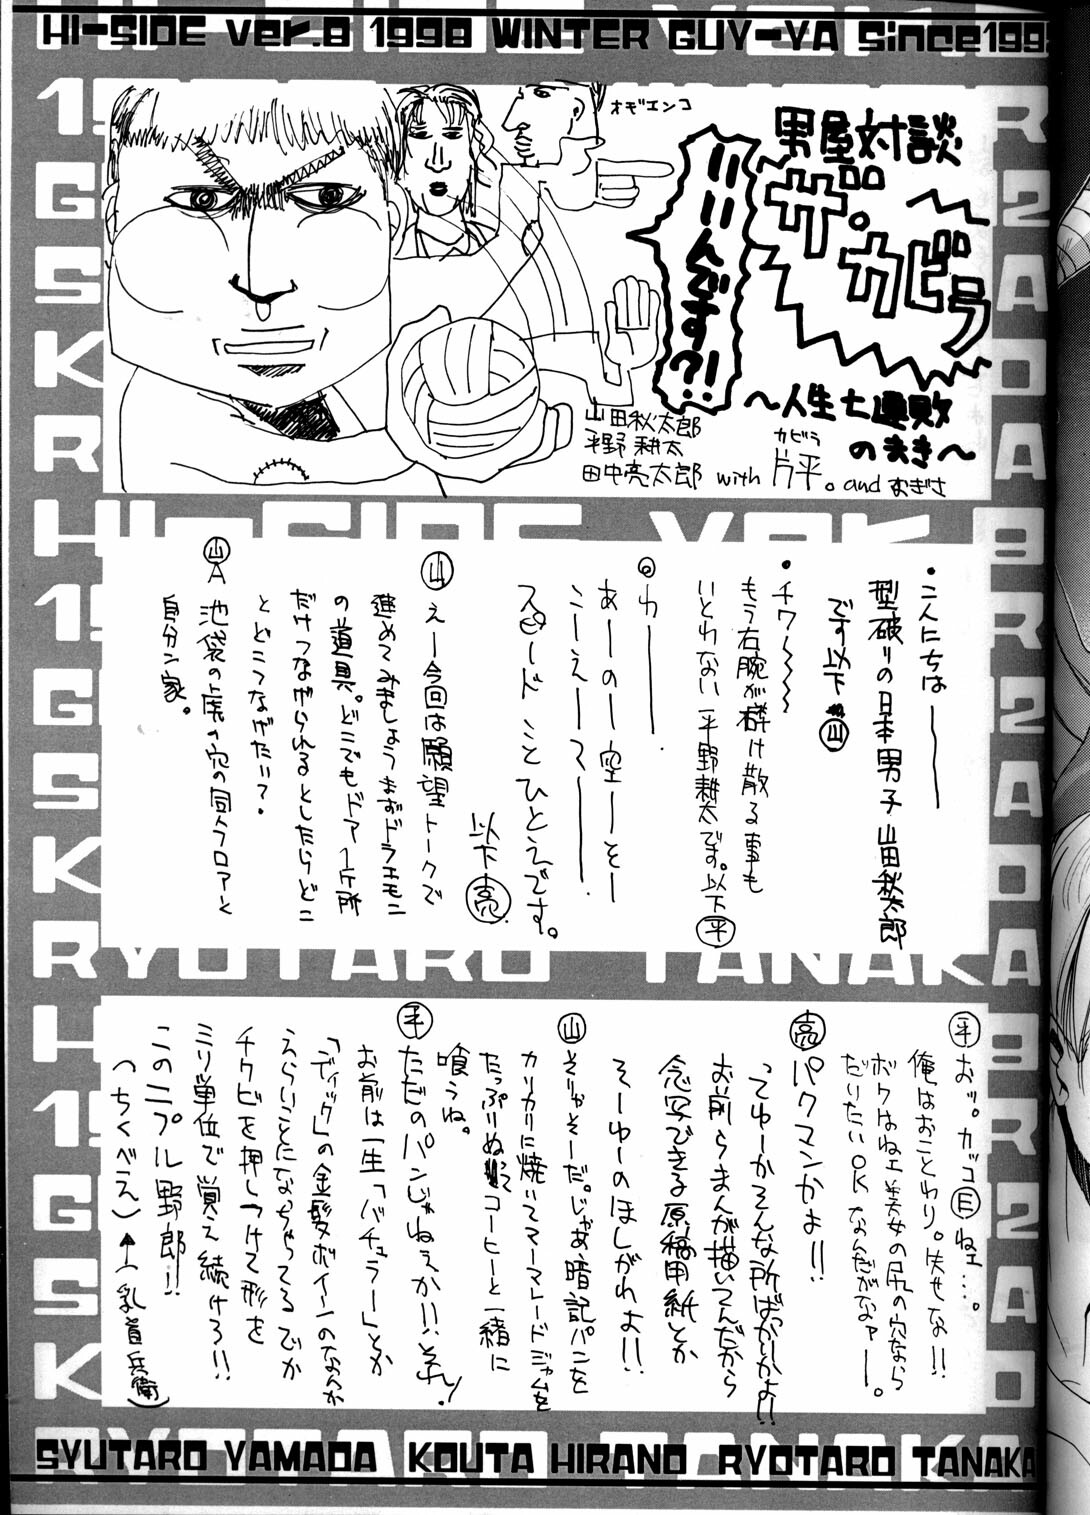 HI-SIDE ver.8 1998 WINTER GUY-YA Since199
男屋対談
ザ。カビラ
〜人生七連敗
の夫き〜
いいんです?!
オギエンコ
山田秋太郎
平野耕太
田中亮太郎 with 片平。and むぎさ
カビラ
・こんにちはーーー
型破りの日本男子山田秋太郎
です以下山
・チワ〜〜〜〜
もう右腕が砕け散る事も
いとわない平野耕太です。以下平
◎わーーー.
あーのー空ーをー
こーえーてーーー.
スピードことひとえです。
以下亮
山 えー今回は願望トークで
進めてみましょうまずドラエモン
の道具。どこでもドア1ケ所
だけつなげられるとしたらどこ
とどこつなげたい?.
山A 池袋の虎の穴の同人フロアーと
自分ン家。
平 おッ。カッコ巨ねェ…。
俺はおことわり。失せな!!
ボクはねェ美女の尻の穴なら
だいたいOKなんだがなァー。
亮 パクマンかよ!!
ってゆーかそんな所ばっかかよ!!
お前らまんが描いてんだから
念写できる原稿用紙とか
そーゆーのほしがれよ!!
山 そりゃそーだ。じゃあ、暗記パンを
カリカリに焼いてマーマレードジャムを
たっぷりぬってコーヒーと一緒に
喰うね。
平 ただのパンじゃねぇか!!それ!
お前は一生「バチュラー」とか
「ディック」の金髪ボインのなんか
えらいことになっちゃってるでか
チクビを押しつけて形を
ミリ単位で覚え続けろ!!
このニプル野郎!!
(ちくべえ)↑乳首兵衛)
SYUTARO YAMADA KOUTA HIRANO RYOTARO TANAKA